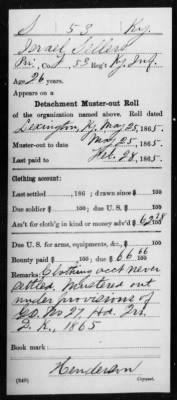 S | 53 | Ky.
Israel Sellers
Pvt., Co. , 53 Reg't Ky. Inf.
Age 26 years.
Appears on a
Detachment Muster-out Roll
of the organization named above. Roll dated
Lexington, Ky. May 25, 1865.
Muster-out to date May 25, 1865.
Last paid to Feb. 28, 1865.
Clothing account:
Last settled , 186 ; drawn since $ 100
Due soldier $ 100; due U. S. $ 100
Am't for cloth'g in kind or money adv'd $ 62 78/100
Due U. S. for arms, equipments, &c., $ 100
Bounty paid $ 100; due $ 66 66/100
Remarks: Clothing acct never
settled. Mustered out
under provisions of
G.O. No 27 Hd. Qrs.
1865
Book mark:
Henderson
(949) Copyist.